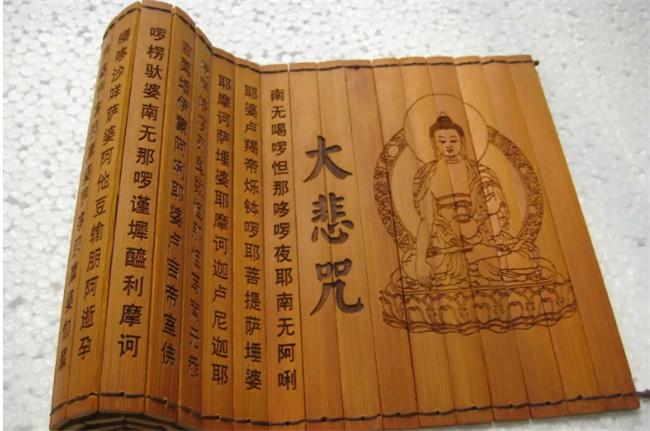 大悲咒
南无喝啰怛那哆啰夜耶南无阿唎
耶婆卢羯帝烁钵啰耶菩提萨埵婆
耶摩诃萨埵婆耶摩诃迦卢尼迦耶
蒙阿唎耶婆卢吉帝室佛
啰楞驮婆南无那啰谨墀醯利摩诃
皤哆沙咩萨婆阿他豆输朋阿逝孕